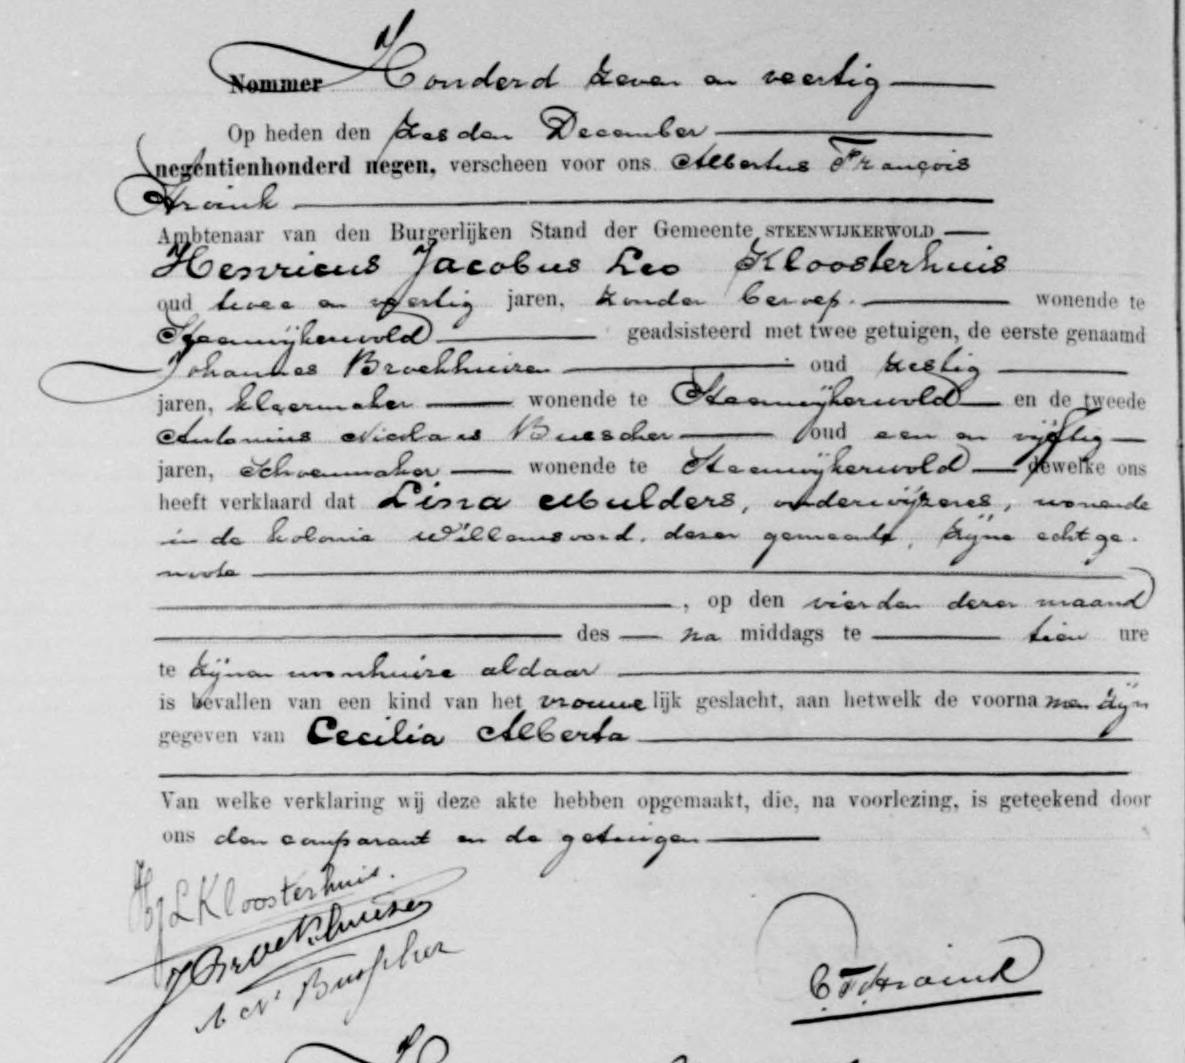 Nommer Honderd zeven en veertig
Op heden den zesden December
negentienhonderd negen, verscheen voor ons Albertus François
Stroink
Ambtenaar van den Burgerlijken Stand der Gemeente STEENWIJKERWOLD
Henricus Jacobus Leo Kloosterhuis
oud twee en veertig jaren, zonder beroep. wonende te
Steenwijkerwold geadsisteerd met twee getuigen, de eerste genaamd
Johannes Broekhuizen oud zestig
jaren, kleermaker wonende te Steenwijkerwold en de tweede
Antonius Nicolaas Buescher oud een en vijftig
jaren, Schoenmaker wonende te Steenwijkerwold dewelke ons
heeft verklaard dat Lina Mulders, onderwijzeres, wonende
in de kolonie Willemsoord, dezer gemeente, zijne echtge-
noote
, op den vierden dezer maand
des na middags te tien ure
te zijnen woonhuize aldaar
is bevallen van een kind van het vrouwelijk geslacht, aan hetwelk de voornamen zijn
gegeven van Cecilia Alberta
Van welke verklaring wij deze akte hebben opgemaakt, die, na voorlezing, is geteekend door
ons den comparant en de getuigen
HJLKloosterhuis.
J Broekhuizen
A N Buescher
Stroink